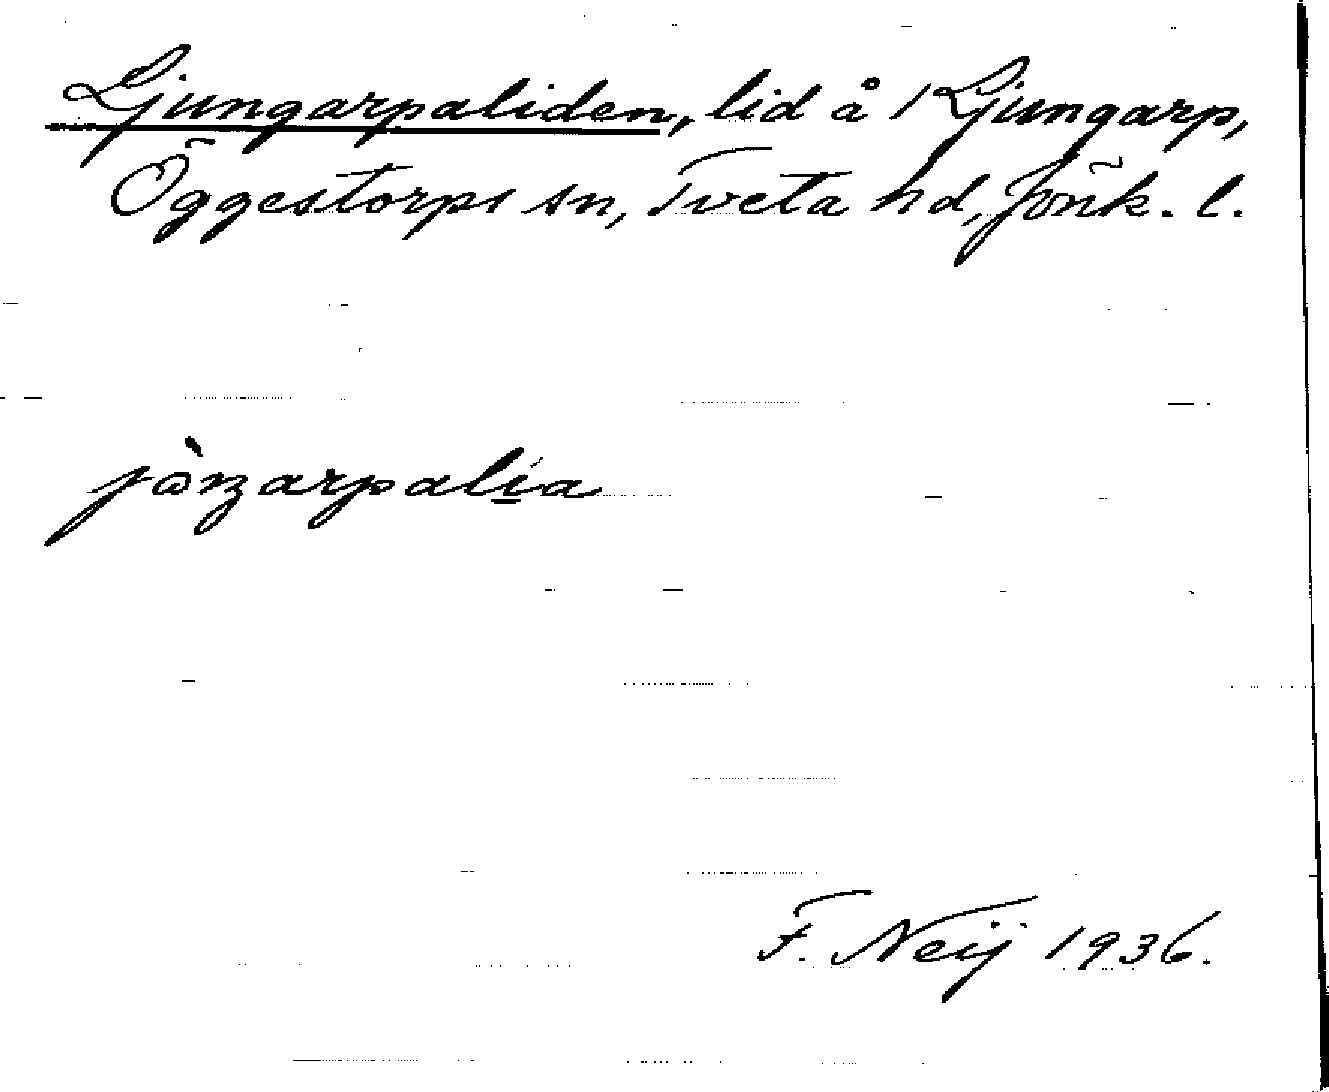 Ljungarpaliden, lid å 1 Ljungarp,
Öggestorps sn, Tveta hd, Jönk. l.
jòŋarpalía
F. Neij 1936.